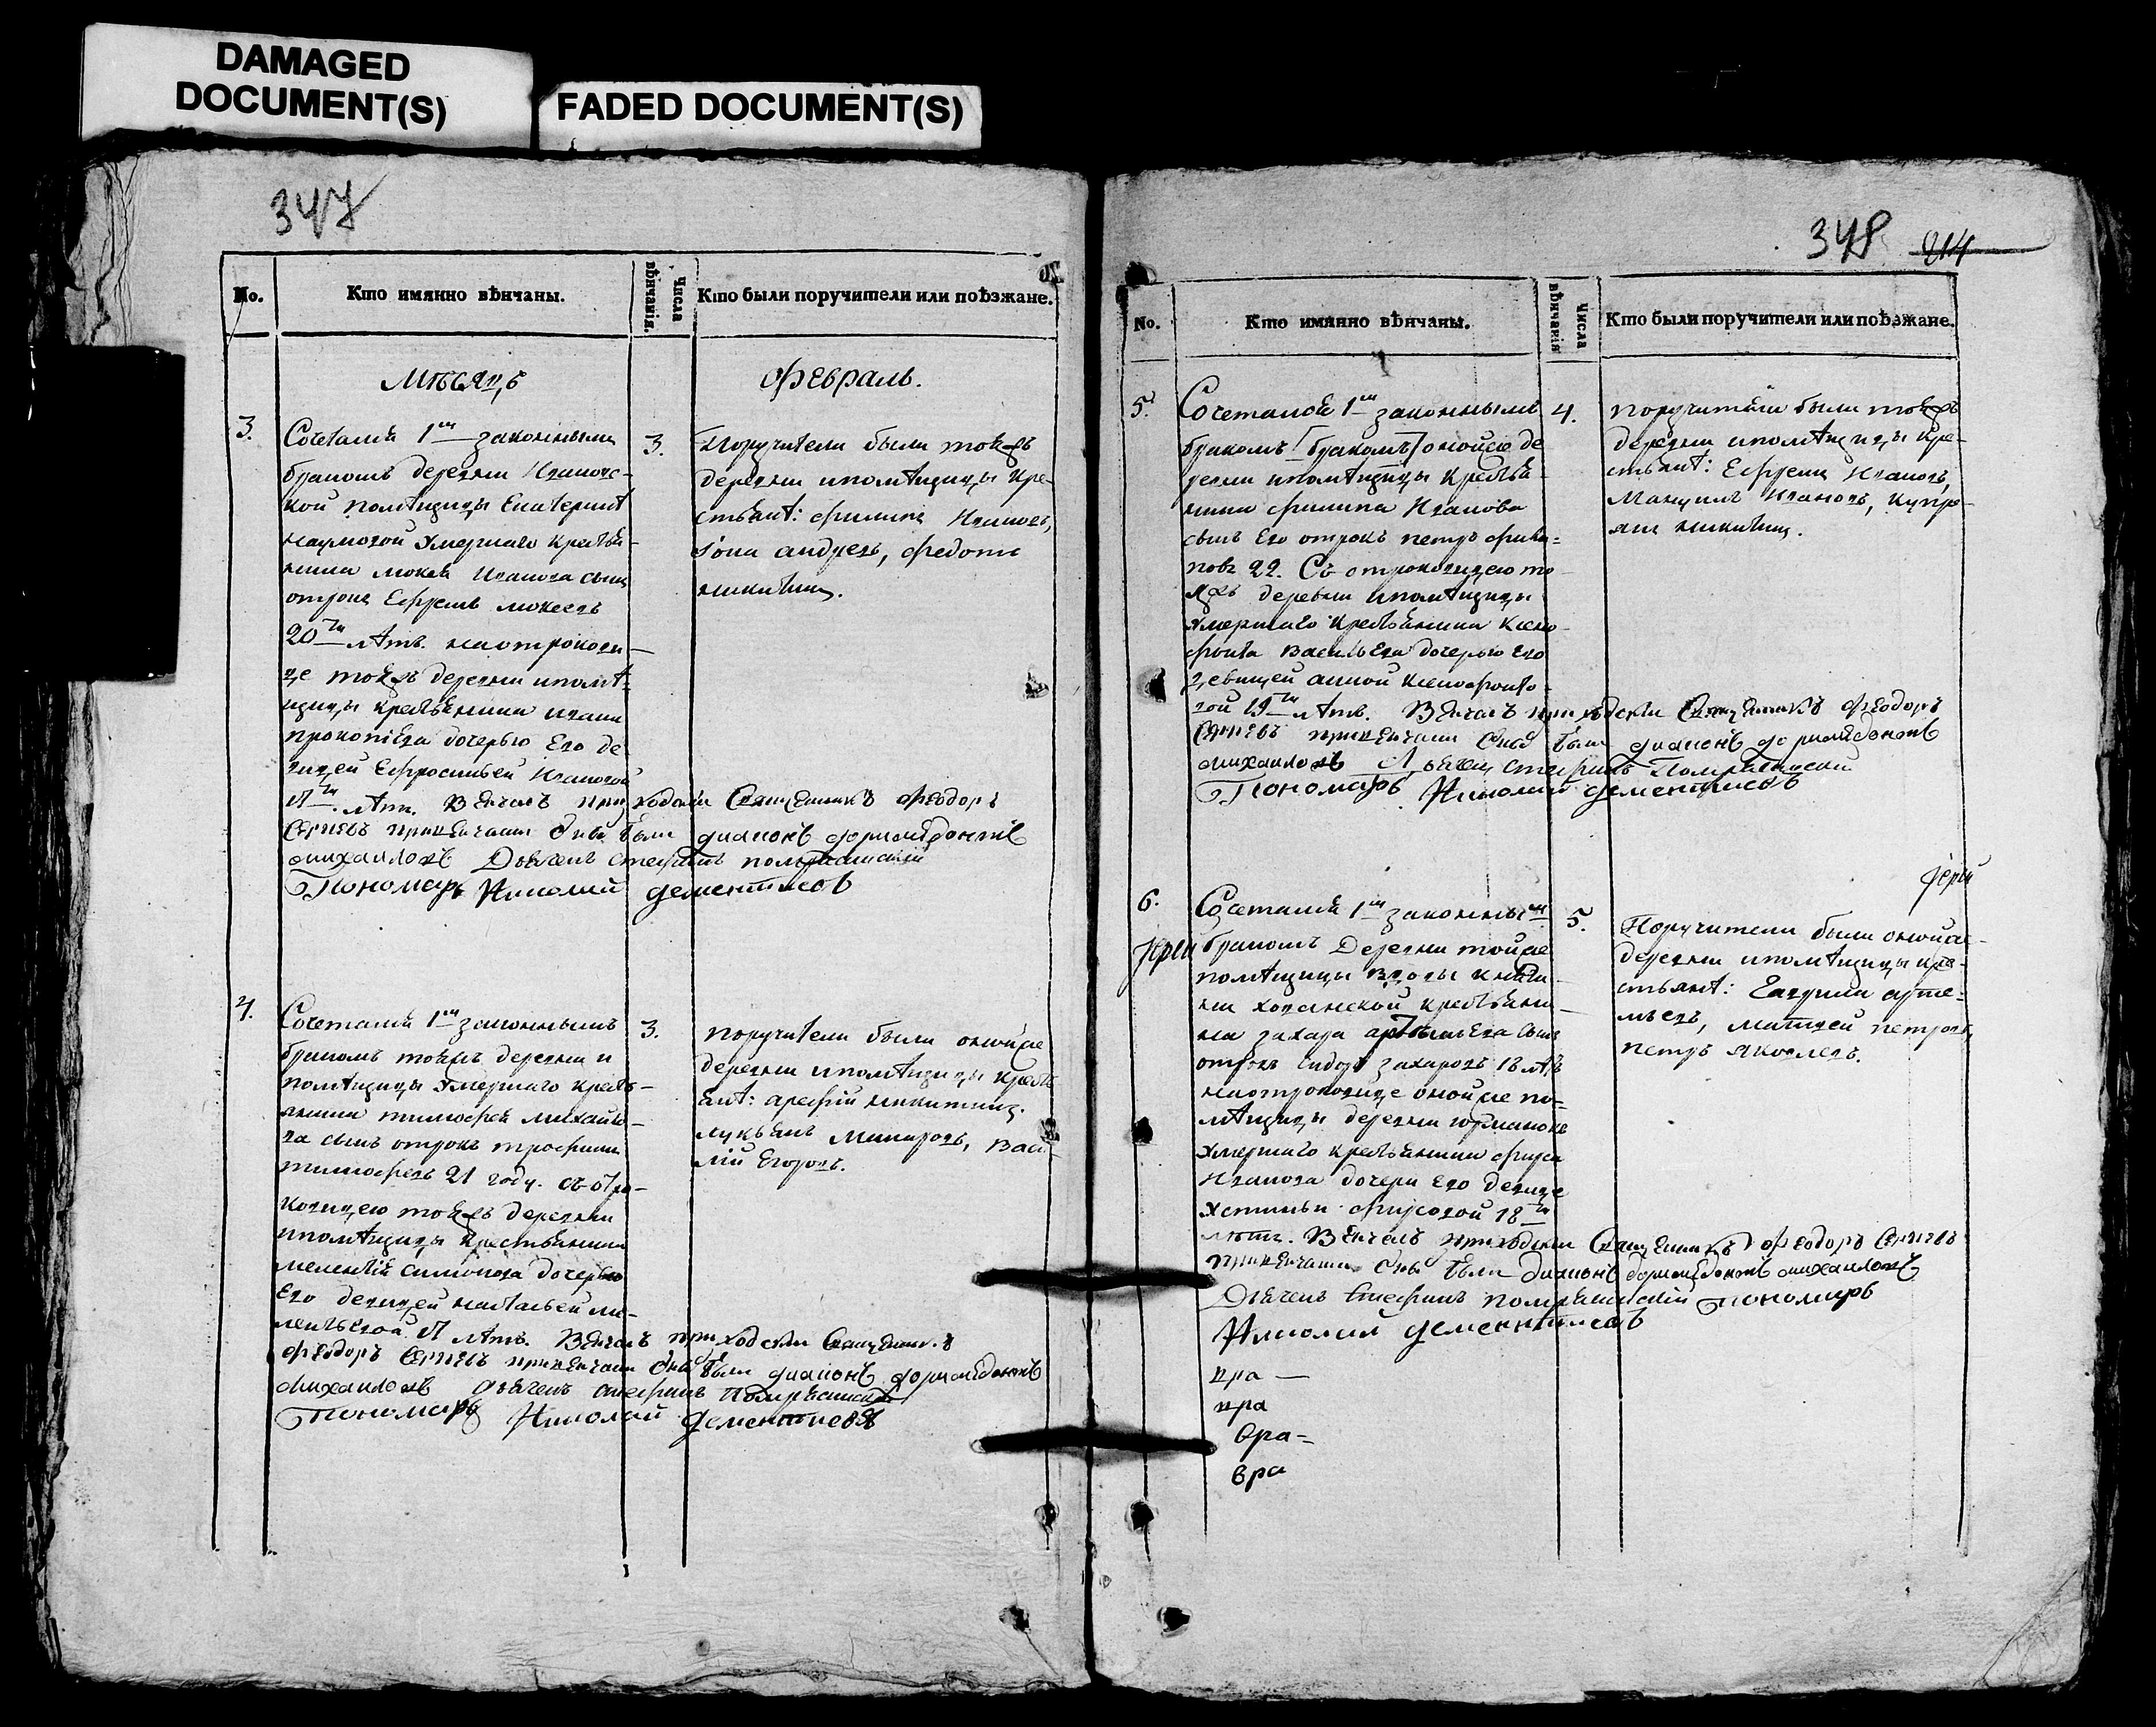 DAMAGED
DOCUMENT(S)
FADED DOCUMENT(S)
347
No.
Кто имянно вѣнчаны.
Числа
вѣнчанія.
Кто были поручители или поѣзжане.
Мѣсяцъ
Февраль.
3.
Сочетался 1м законнымъ
бракомъ деревни
кой помѣщицы Екатерины
Наумовой умершаго крестья-
нина мокея Иванова сынъ
отрокъ Ефремъ мокеевъ
20ти лѣтъ. на отрокови-
це тоежъ деревни и помѣ-
щицы крестьянина ивана
прокопіева дочерью Его де-
вицей Ефросиньей Ивановой
лѣтъ. Венчалъ приходски Священникъ Феодоръ
Сергіевъ при венчани оных были диаконъ дормидонтъ
михаиловъ Дьячекъ стефанъ
Пономарь Николай дементиевъ
3.
Поручители были тоежъ
деревни и помѣщицы кре-
стьянѣ: филипъ Ивановъ,
андреевъ, федотъ
никитинъ.
4.
Сочетался 1м законнымъ
бракомъ тоежъ деревни и
помѣщицы умершаго кресть-
янина тимофея михайло-
ва сынъ отрокъ трофимъ
тимофеевъ 21 году. съ отро-
ковицею тоежъ деревни
и помѣщицы крестьянина
мелентія симонова дочерью
Его девицей натальей ме-
лентьевой лѣтъ. Венчалъ приходски Священникъ
Феодоръ Сергіевъ при венчани оных были диаконъ дормидонтъ
михаиловъ дьячекъ стефанъ
Пономарь Николай дементиевъ
3.
поручители были оной же
деревни и помѣщицы кресть
янѣ: арефій никитинъ.
лукьянъ Васи-
лій Егоровъ.
348 214
No.
Кто имянно вѣнчаны.
Числа
вѣнчанія
Кто были поручители или поѣзжане.
5.
Сочетался 1м законнымъ
бракомъ [бракомъ] оной же де
ревни и помѣщицы крестья-
нина филипа Иванова
сынъ Его отрокъ петръ фили-
повъ 22. Съ отроковицею то-
яжъ деревни и помѣщицы
умершаго крестьянина ксено-
фонта васильева дочерью его
девицей анной ксенофонто-
вой 19ти лѣтъ. Венчалъ приходски Священникъ Феодоръ
Сергіевъ при венчани оных были диаконъ дормидонтъ
михаиловъ Дьячекъ стефанъ
Пономарь Николай дементиевъ
4.
поручители были тоежъ
деревни и помѣщицы кре-
стьянѣ: Ефремъ Ивановъ,
Ивановъ, купре-
янъ никитинъ.
6.
Сочетался 1м законным
бракомъ Деревни той же
помѣщицы вдовы княги-
ни хованской крестьяни-
на захара артемьева сынъ
отрокъ сидоръ захаровъ 18 лѣтъ
на отроковице оной же по-
мѣщицы деревни
умершаго крестьянина фирса
Иванова дочери Его девице
устиньи фирсовой 18ти
лѣтъ. Венчалъ приходски Священникъ Феодоръ Сергіевъ
при венчани оных были диаконъ дормидонтъ михаиловъ
Дьячекъ Стефанъ Пономарь
Николай дементиевъ
5.
Поручители были оной же
деревни и помѣщицы кре-
стьянѣ: Гаврила арте-
мьевъ, матвей петровъ,
петръ яковлевъ.
вра —
вра
вра =
вра